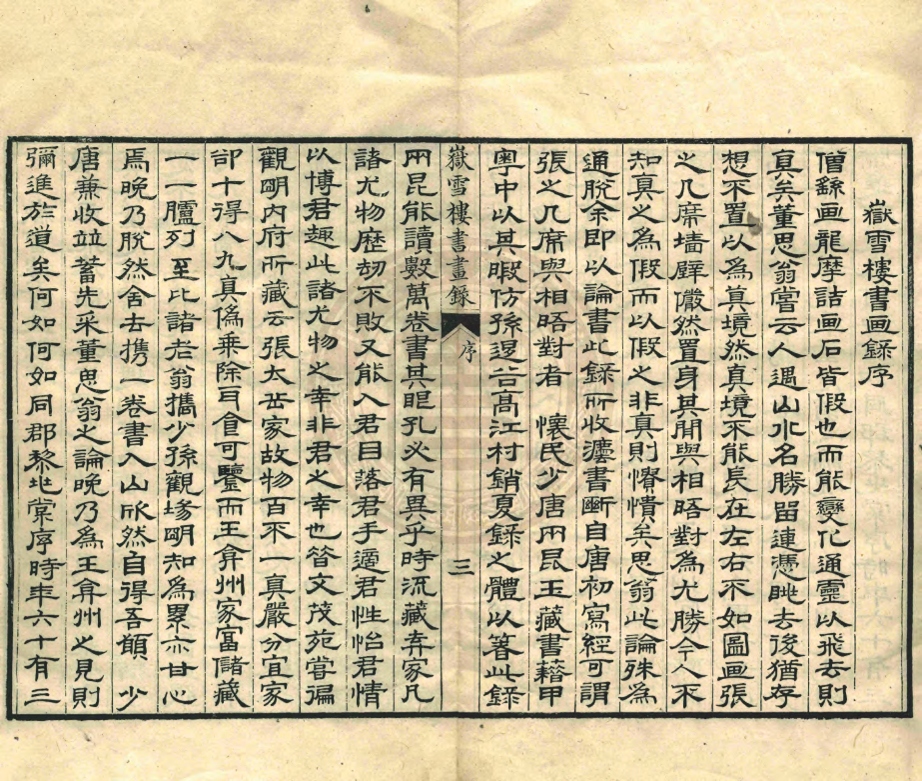 嶽雪樓書画錄序
僧繇画龍摩詰画石皆假也而能變化通靈以飛去則
真矣董思翁嘗云人遇山水名勝畱連憑眺去後猶存
想不置以為真境然真境不能長在左右不如圖画張
之几席墻壁儼然置身其閒與相晤對為尤勝今人不
知真之為假而以假之非真則憀憒矣思翁此論殊為
通脫余即以論書此錄所收灋書斷自唐初寫經可謂
張之几席與相晤對者　懷民少唐兩昆玉藏書藉甲
粵中以其暇仿孫退谷高江村銷夏錄之體以篹此錄
嶽雪樓書畫錄　序　三
兩昆能讀數萬卷書其眼孔必有異乎時流藏弆家凡
諸尤物歷劫不敗又能入君目落君手適君性怡君情
以博君趣此諸尤物之幸非君之幸也昝文茂苑嘗徧
觀明內府所藏云張太岳家故物百不一真嚴分宜家
卻十得八九真偽乗除曰食可鑒而王弇州家富儲藏
一一臚列至比諸老翁攜少孫觀塲明知為累亦甘心
焉晚乃脫然舍去携一卷書入山欣然自得吾願　少
唐兼收竝蓄先采董思翁之論晚乃為王弇州之見則
彌進於道矣何如何如同郡黎兆棠序時年六十有三